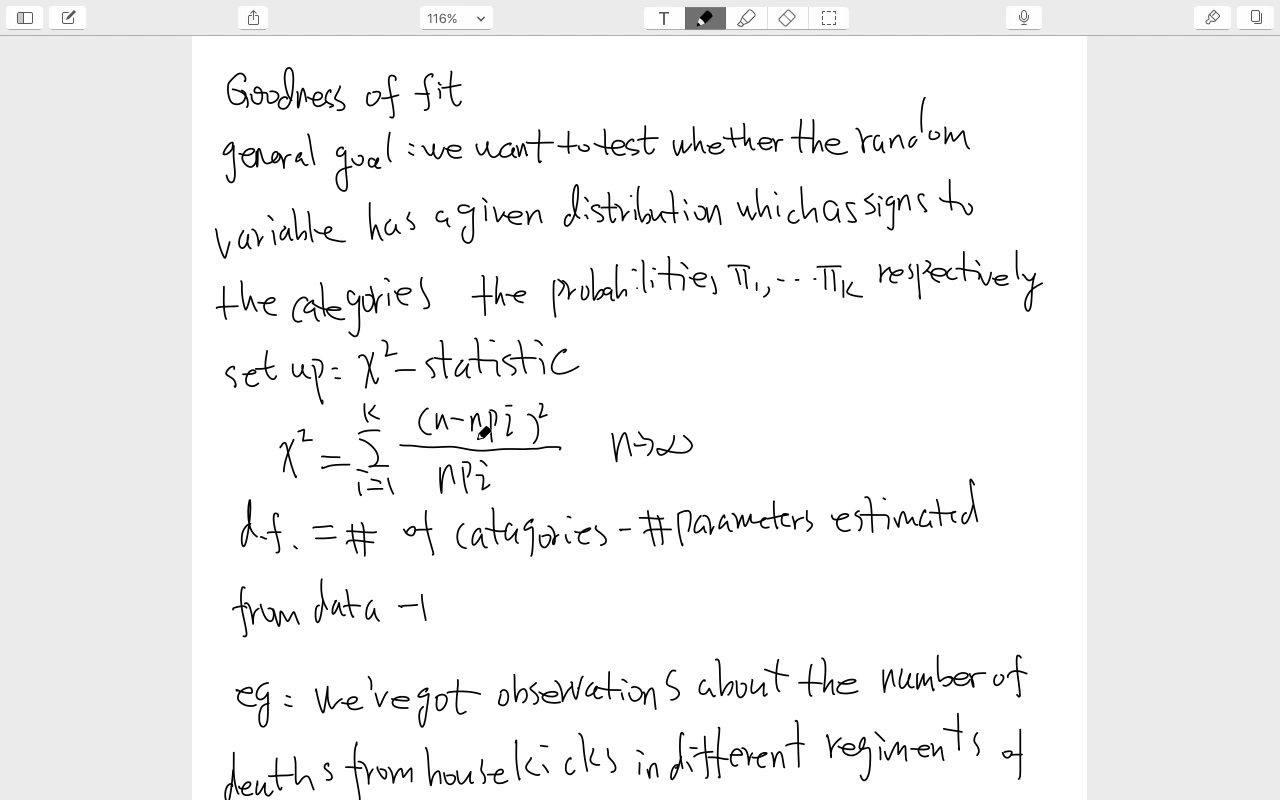 116%
T
Goodness of fit
general goal : we want to test whether the random
variable has a given distribution which assigns to
the categories the probabilities π₁, ... πK respectively
set up: χ² – statistic
χ² = Σ_{i=1}^{K} (n-npi)² / npi    n→∞
d.f. = # of catagories - # parameters estimated
from data -1
eg: we've got observations about the number of
deaths from house kicks in different regiments of